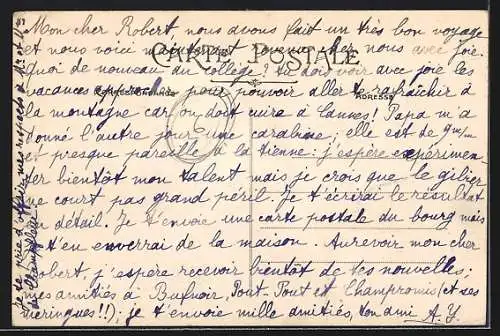 CARTE POSTALE
CORRESPONDANCE
ADRESSE
Mon cher Robert nous avons fait un très bon voyage
et nous voici maintenant revenus chez nous avec joie.
Quoi de nouveau au collège? tu dois voir avec joie les
vacances approcher pour pouvoir aller te rafraîchir à
la montagne car on doit cuire à Cannes! Papa m'a
donné l'autre jour une carabine; elle est de 9m/m
et presque pareille à la tienne; j'espère expérimen
ter bientôt mon talent mais je crois que le gibier
ne court pas grand péril. Je t'écrirai le résultat
en détail. Je t'envoie une carte postale du bourg mais
je t'en enverrai de la maison. Au revoir mon cher
Robert, j'espère recevoir bientôt de tes nouvelles;
mes amitiés à Bufnoir, Pout-Pout et Champromis (et ses
meringues!!); je t'envoie mille amitiés, ton ami A.Y.
Je te prie d'offrir mes respects à Mr et